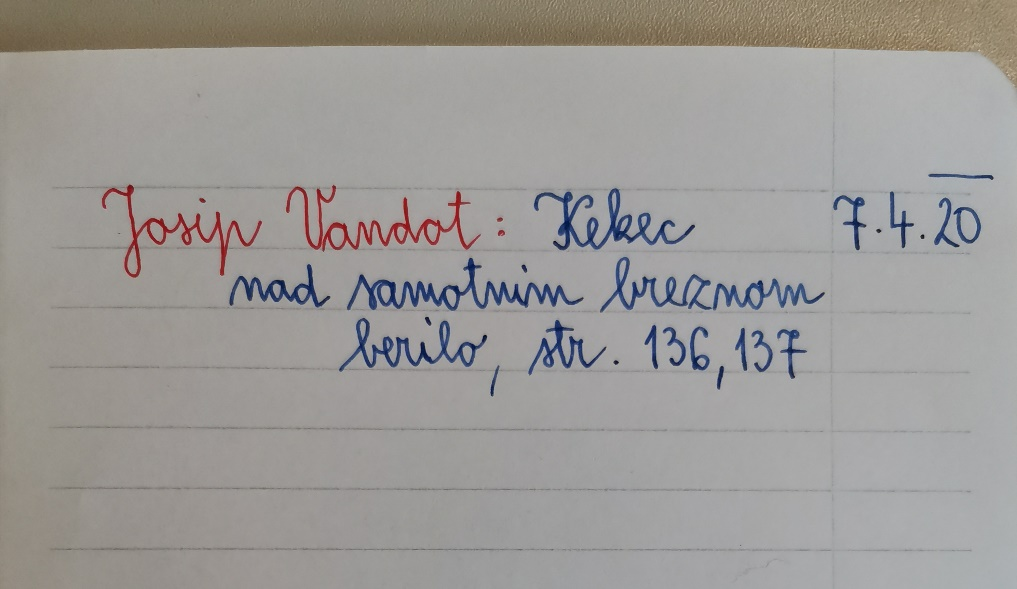 Josip Vandot: Kekec 7.4.20
nad samotnim breznom
berilo, str. 136, 137